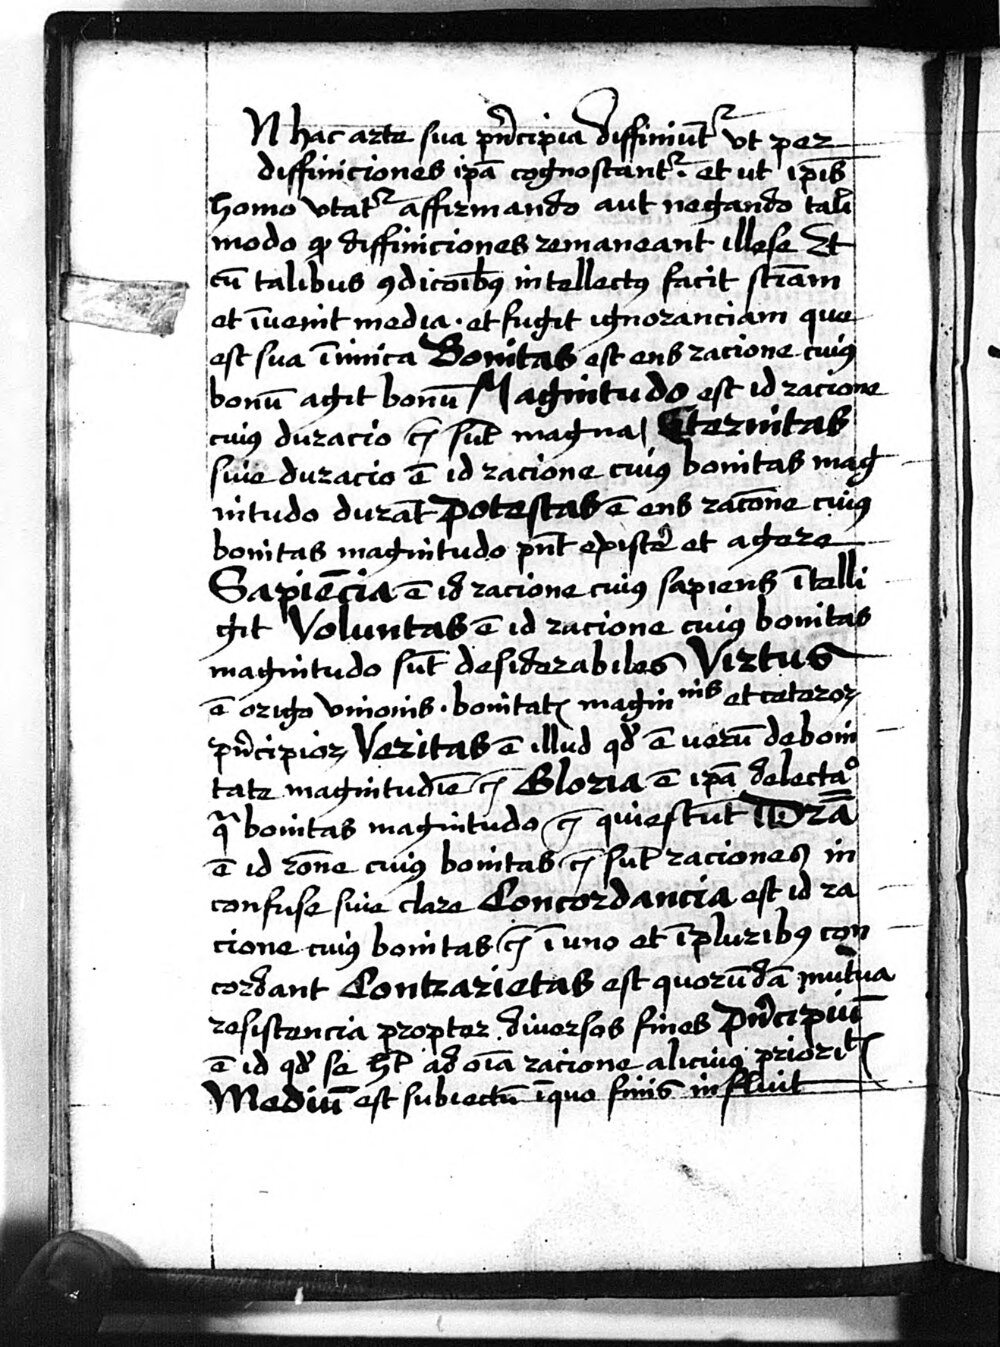 N hac arte sua pͥncipia diffiniūt᷑ vt per
diffiniciones ipā cognoscant᷑. et ut ipīs
homo vtat᷑ affirmando aut negando tali
modo ꝙ diffiniciones remaneant illese Et
cū talibus ꝯdicōibꝰ intellectꝰ facit sciam
et īuenit media · et fugit ignoranciam que
est sua īimica Bonitas est ens racione cuiꝰ
bonū agit bonū Magnitudo est id racione
cuiꝰ duracio ⁊c̄ sūt magna Eternitas
siue duracio ē id racione cuiꝰ bonitas mag
nitudo durāt Potestas ē ens racōne cuiꝰ
bonitas magnitudo pn̄t existeͬ et agere
Sapiēcia ē id racione cuiꝰ sapiens ītelli
git Voluntas ē id racione cuiꝰ bonitas
magnitudo sūt desiderabiles Virtus
ē origo vnionis · bonitatꝭ magniⁿⁱˢ et ceteroꝝ
pͥncipioꝝ Veritas ē illud qđ ē uerū de boni
tate magnitudīe ⁊c̄ Gloria ē ipā delectaᵒ
qᵃ bonitas magnitudo ⁊c̄ quiescūt Drā
ē id rōne cuiꝰ bonitas ⁊c̄ sūt raciones in
confuse siue clare Concordancia est id ra
cione cuiꝰ bonitas ⁊c̄ ī uno et ī pluribꝰ con
cordant Contrarietas est quorūdā mutua
resistencia propter diuersos fines Pͥncipiū
ē id qđ se ht̄ ad oīa racione alicuiꝰ prioritꝭ
Mediū est subiectū ī quo finis influit